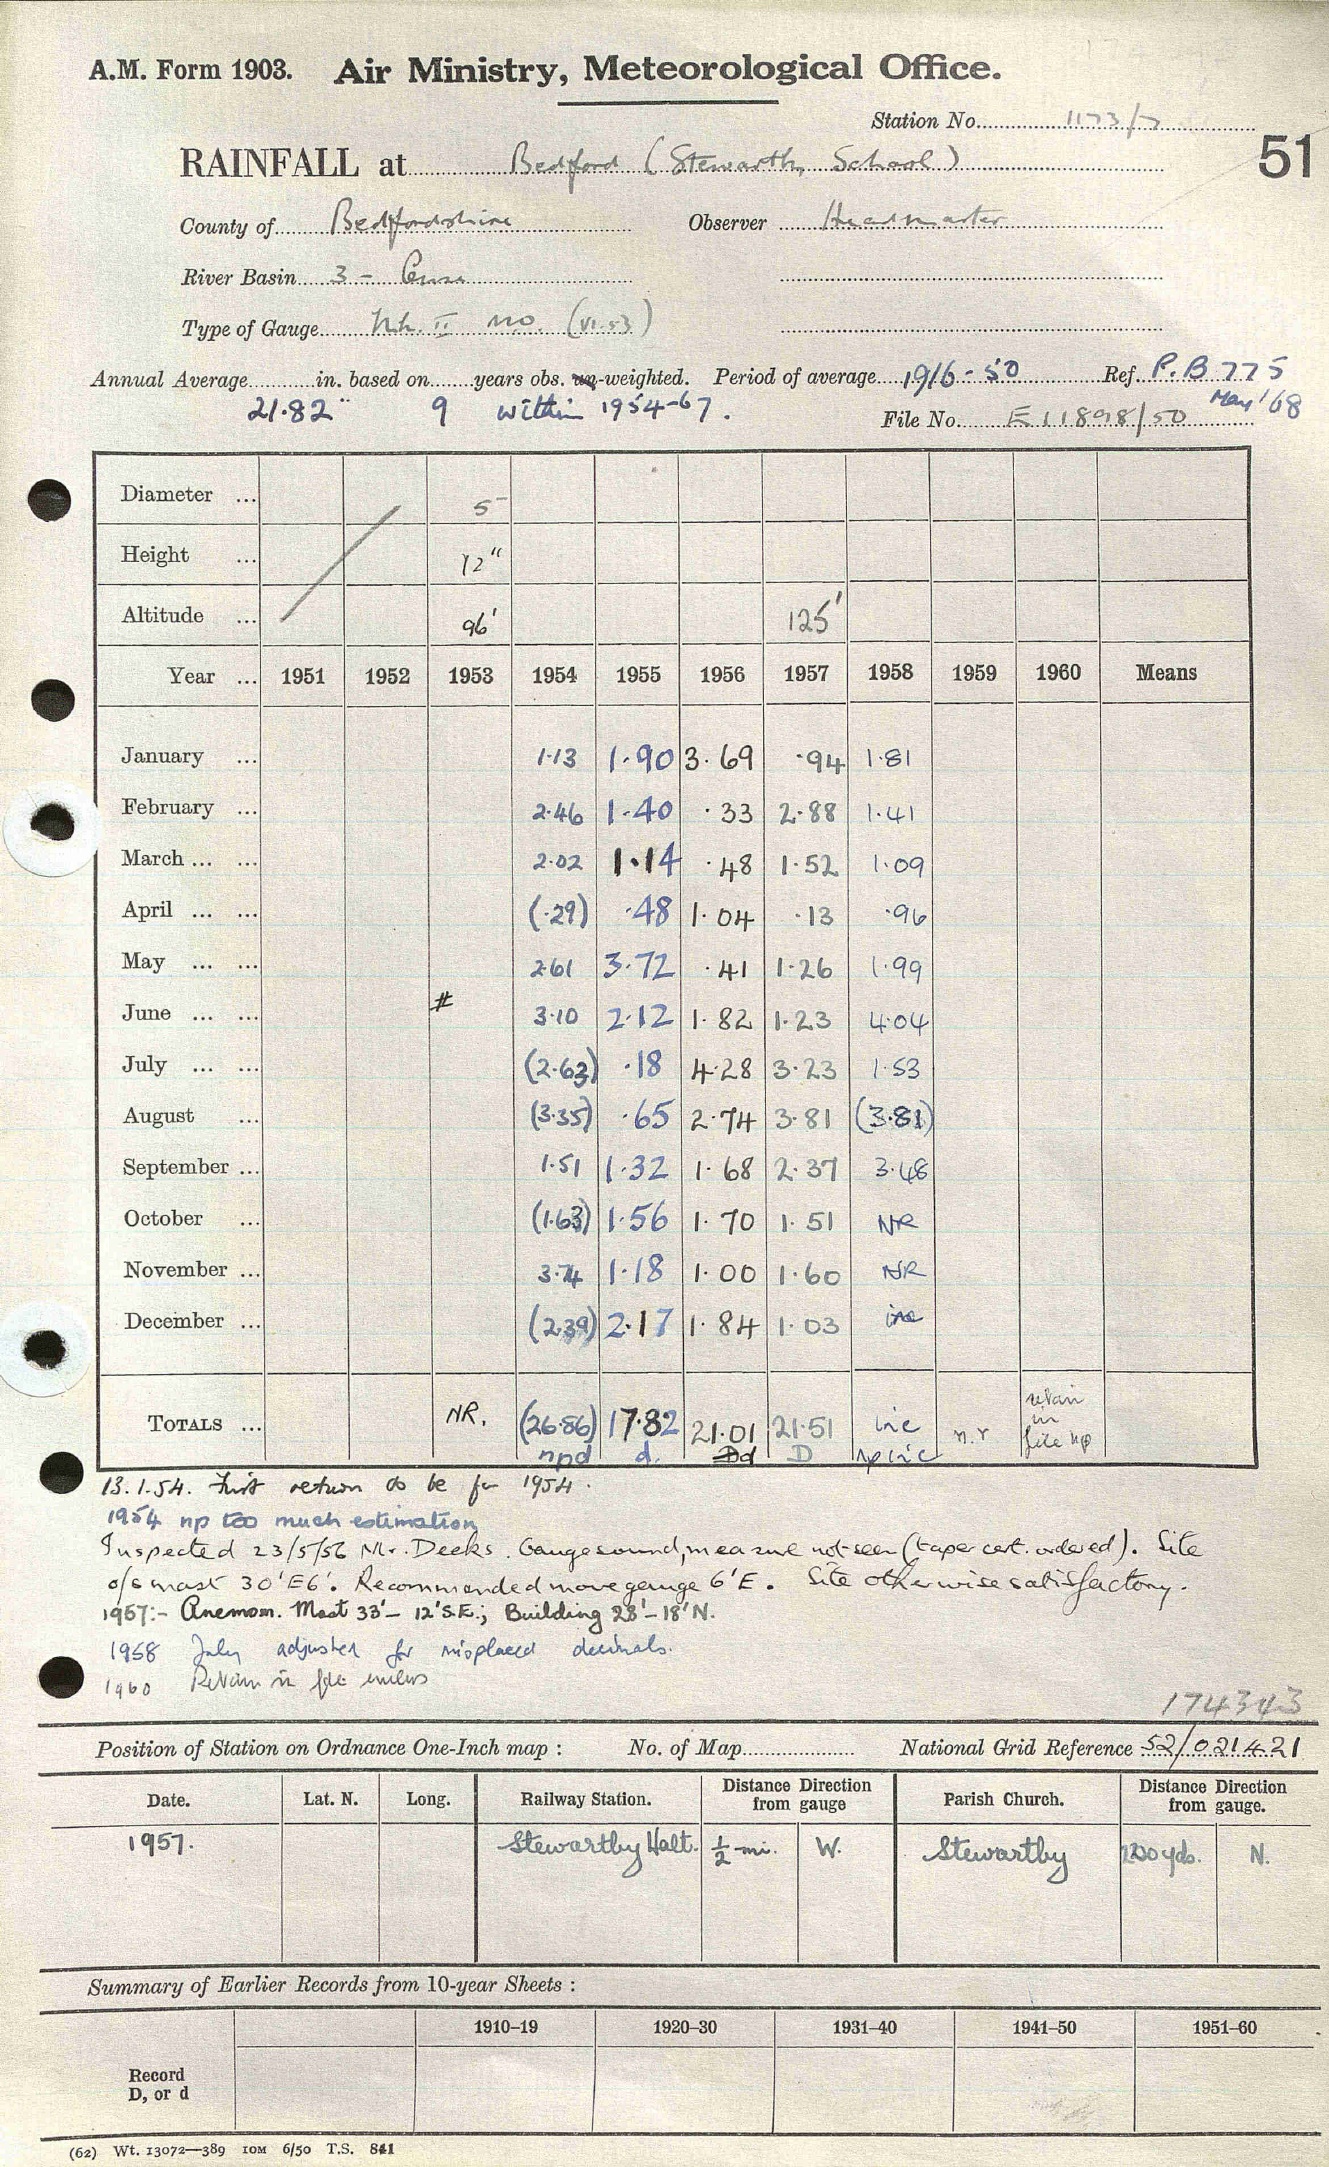 A.M. Form 1903. Air Ministry, Meteorological Office.
Station No. 1173/7
51
RAINFALL at Bedford (Stewartby School)
County of Bedfordshire Observer Headmaster
River Basin 3 - Ouse
Type of Gauge Mk. II M.O. (VI.53)
Annual Average in. based on years obs. un-weighted. Period of average 1916-50 Ref. P.B 775
21.82" 9 within 1954-67. May '68
File No. E11898/50
Diameter ... 5"
Height ... 12"
Altitude ... 96' 125'
Year ... 1951 1952 1953 1954 1955 1956 1957 1958 1959 1960 Means
January ... 1.13 1.90 3.69 .94 1.81
February ... 2.46 1.40 .33 2.88 1.41
March ... ... 2.02 1.14 .48 1.52 1.09
April ... ... (.29) .48 1.04 .13 .96
May ... ... 2.61 3.72 .41 1.26 1.99
June ... ... # 3.10 2.12 1.82 1.23 4.04
July ... ... (2.63) .18 4.28 3.23 1.53
August ... (3.35) .65 2.74 3.81 (3.81)
September ... 1.51 1.32 1.68 2.37 3.48
October ... (1.63) 1.56 1.70 1.51 NR
November ... 3.74 1.18 1.00 1.60 NR
December ... (2.39) 2.17 1.84 1.03 inc
TOTALS ... NR. (26.86) 17.82 21.01 21.51 inc n.r retain in file np
npd d. Dd D np inc
13.1.54. First return to be for 1954.
1954 np too much estimation
Inspected 23/5/56 Mr. Deeks. Gauge sound, measure not seen (taper cert. ordered). Site
o/s mast 30'E6'. Recommended move gauge 6'E. Site otherwise satisfactory.
1957:- Anemom. Mast 33'- 12'S.E.; Building 28'-18'N.
1958 July adjusted for misplaced decimals.
1960 Retain in file
174343
Position of Station on Ordnance One-Inch map : No. of Map National Grid Reference 52/021421
Date. Lat. N. Long. Railway Station. Distance Direction from gauge Parish Church. Distance Direction from gauge.
1957. Stewartby Halt. ½ mi. W. Stewartby 200 yds. N.
Summary of Earlier Records from 10-year Sheets :
1910–19 1920–30 1931–40 1941–50 1951–60
Record
D, or d
(62) Wt. 13072—389 IOM 6/50 T.S. 841